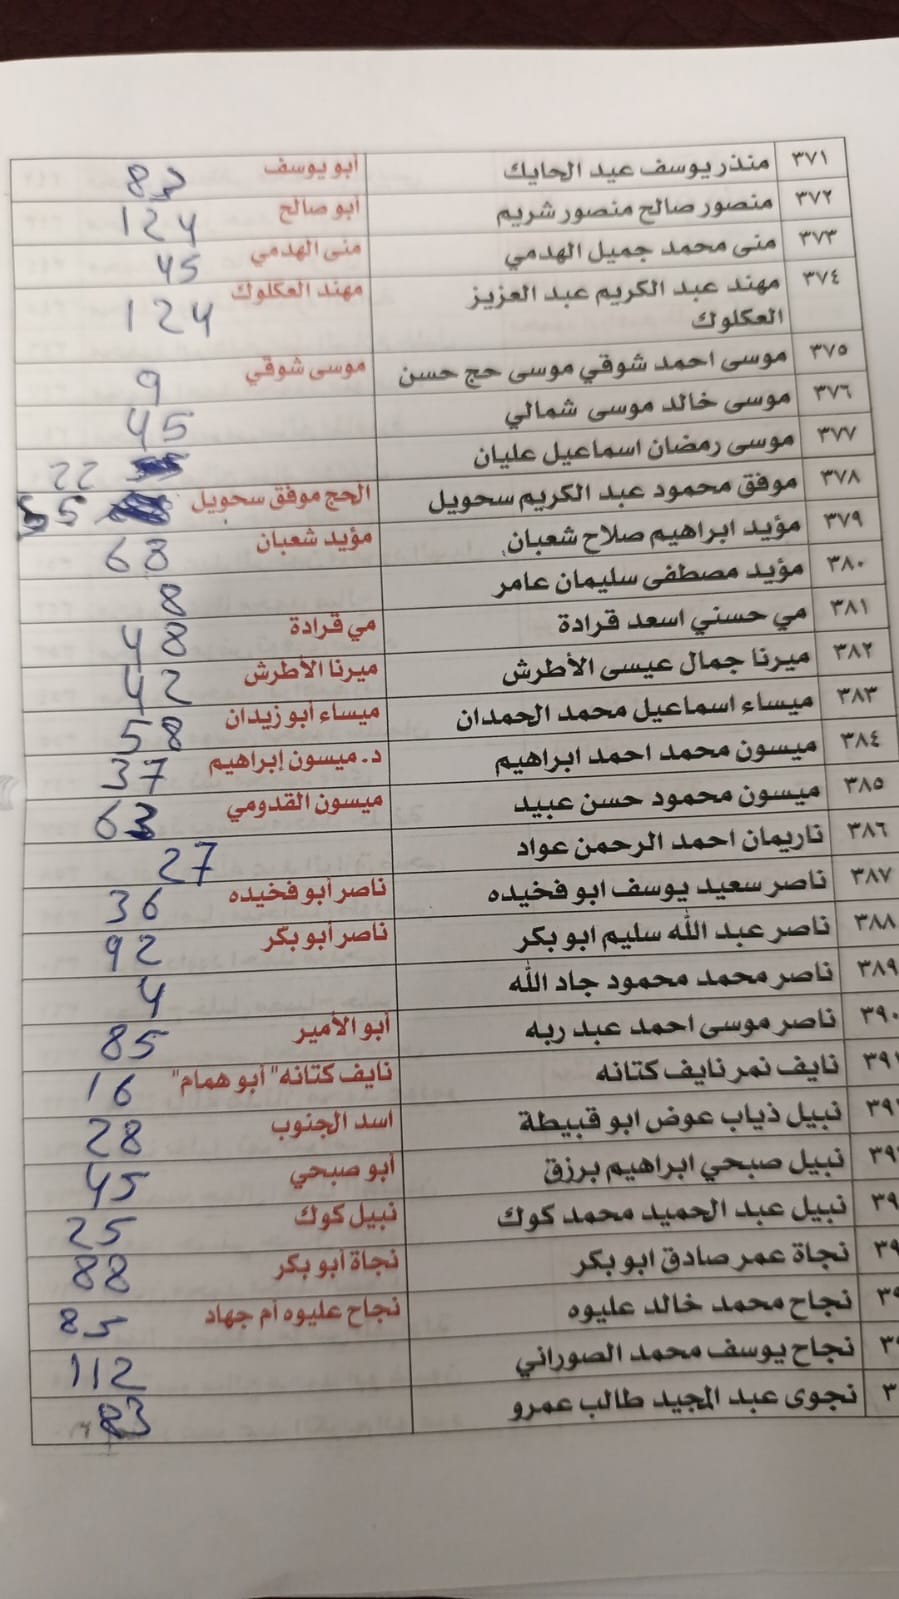 ٣٧١ منذر يوسف عيد الحايك أبو يوسف 83
٣٧٢ منصور صالح منصور شريم أبو صالح 124
٣٧٣ منى محمد جميل الهدمي منى الهدمي 45
٣٧٤ مهند عبد الكريم عبد العزيز مهند العكلوك 124
العكلوك
٣٧٥ موسى احمد شوقي موسى حج حسن موسى شوقي 9
٣٧٦ موسى خالد موسى شمالي 45
٣٧٧ موسى رمضان اسماعيل عليان 22
٣٧٨ موفق محمود عبد الكريم سحويل الحج موفق سحويل 55
٣٧٩ مؤيد ابراهيم صلاح شعبان مؤيد شعبان 68
٣٨٠ مؤيد مصطفى سليمان عامر 8
٣٨١ مي حسني اسعد قرادة مي قرادة 48
٣٨٢ ميرنا جمال عيسى الأطرش ميرنا الأطرش 42
٣٨٣ ميساء اسماعيل محمد الحمدان ميساء أبو زيدان 58
٣٨٤ ميسون محمد احمد ابراهيم د. ميسون إبراهيم 37
٣٨٥ ميسون محمود حسن عبيد ميسون القدومي 63
٣٨٦ ناريمان احمد الرحمن عواد 27
٣٨٧ ناصر سعيد يوسف ابو فخيده ناصر أبو فخيده 36
٣٨٨ ناصر عبد الله سليم ابو بكر ناصر أبو بكر 92
٣٨٩ ناصر محمد محمود جاد الله 4
٣٩٠ ناصر موسى احمد عبد ربه أبو الأمير 85
٣٩١ نايف نمر نايف كتانه نايف كتانه "أبو همام" 16
٣٩ نبيل ذياب عوض ابو قبيطة اسد الجنوب 28
٣٩ نبيل صبحي ابراهيم برزق أبو صبحي 45
٣٩ نبيل عبد الحميد محمد كوك نبيل كوك 25
٣٩ نجاة عمر صادق ابو بكر نجاة أبو بكر 88
٣٩ نجاح محمد خالد عليوه نجاح عليوه أم جهاد 85
٣ نجاح يوسف محمد الصوراني 112
٣ نجوى عبد المجيد طالب عمرو 83